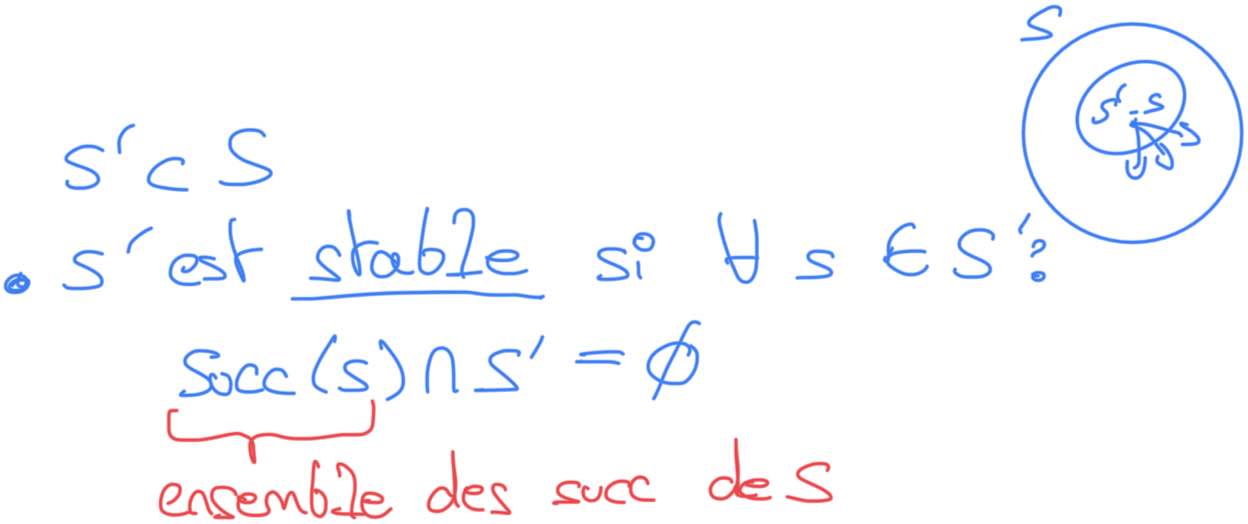 S
S' . s
S' ⊂ S
• S' est stable si ∀ s ∈ S' :
Succ(s) ∩ S' = ∅
ensemble des succ de s